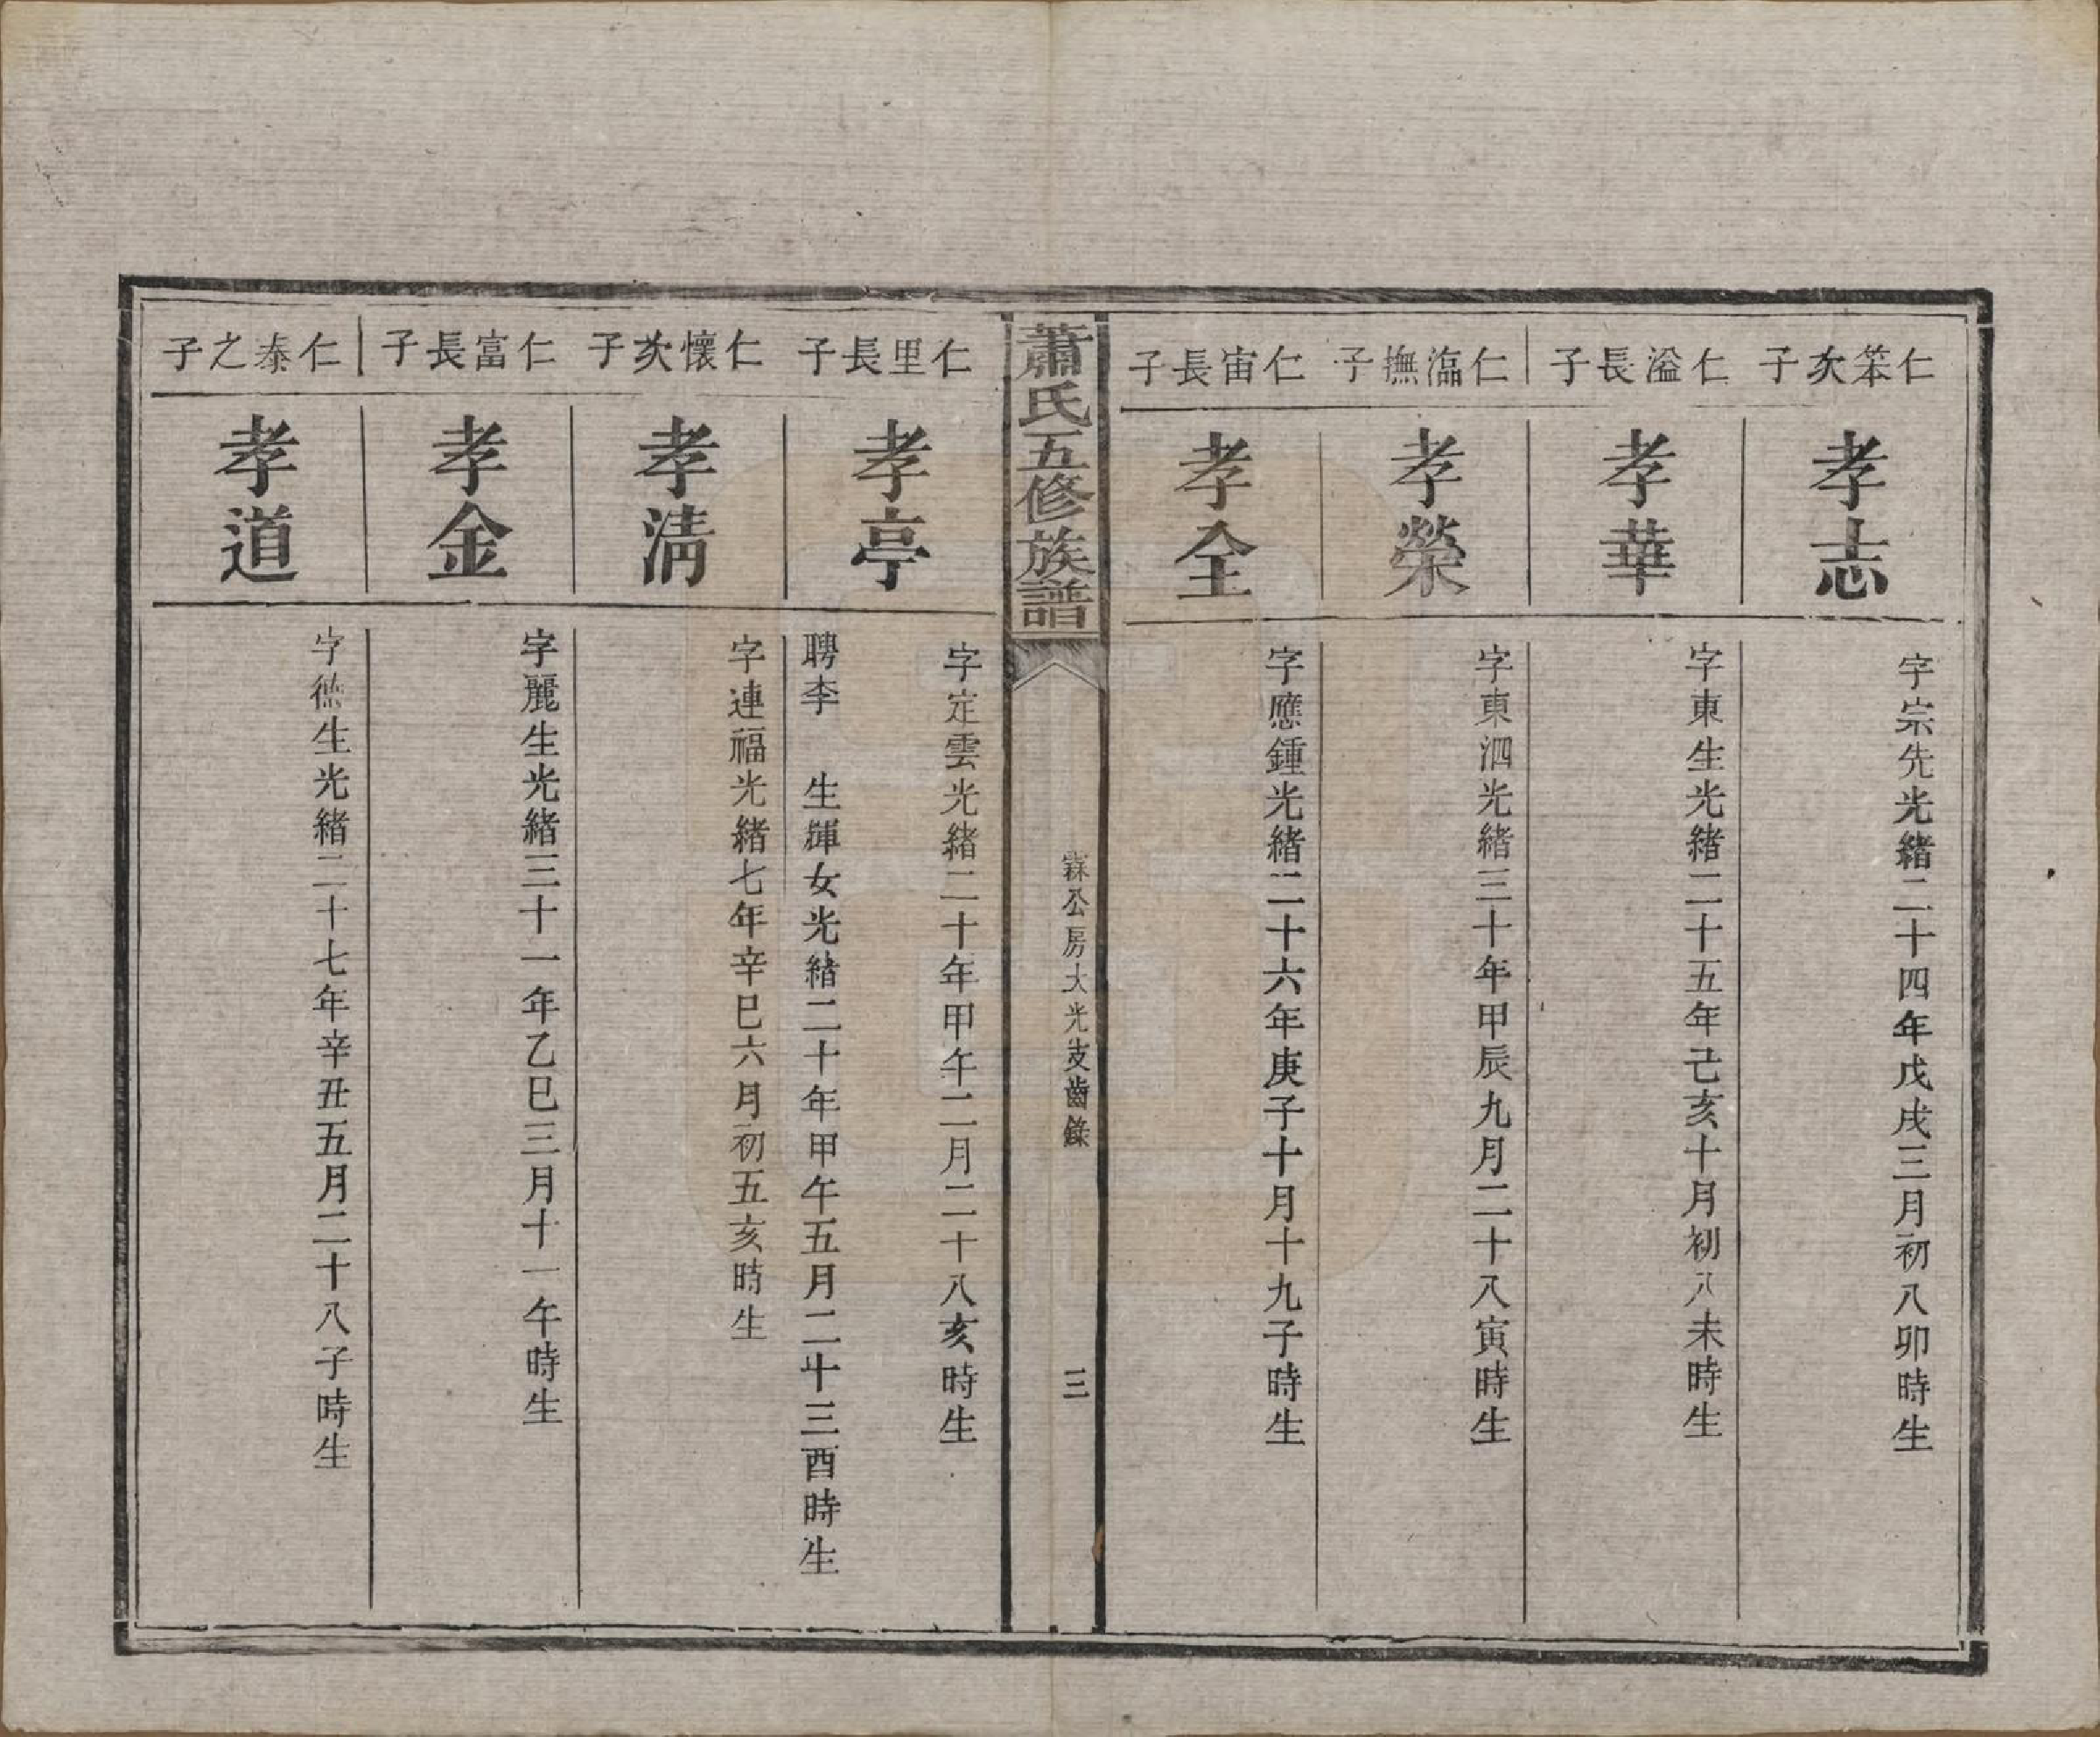 仁笨次子
孝志
字宗先光緒二十四年戊戌三月初八卯時生
仁溢長子
孝華
字東生光緒二十五年己亥十月初八未時生
仁溫撫子
孝榮
字東泗光緒三十年甲辰九月二十八寅時生
仁宙長子
孝全
字應鍾光緒二十六年庚子十月十九子時生
蕭氏五修族譜
霖公房大光支齒錄
三
仁里長子
孝亭
字定雲光緒二十年甲午二月二十八亥時生
聘李 生輝女光緒二十年甲午五月二十三酉時生
仁懷次子
孝淸
字連福光緒七年辛巳六月初五亥時生
仁富長子
孝金
字麗生光緒三十一年乙巳三月十一午時生
仁泰之子
孝道
字德生光緒二十七年辛丑五月二十八子時生